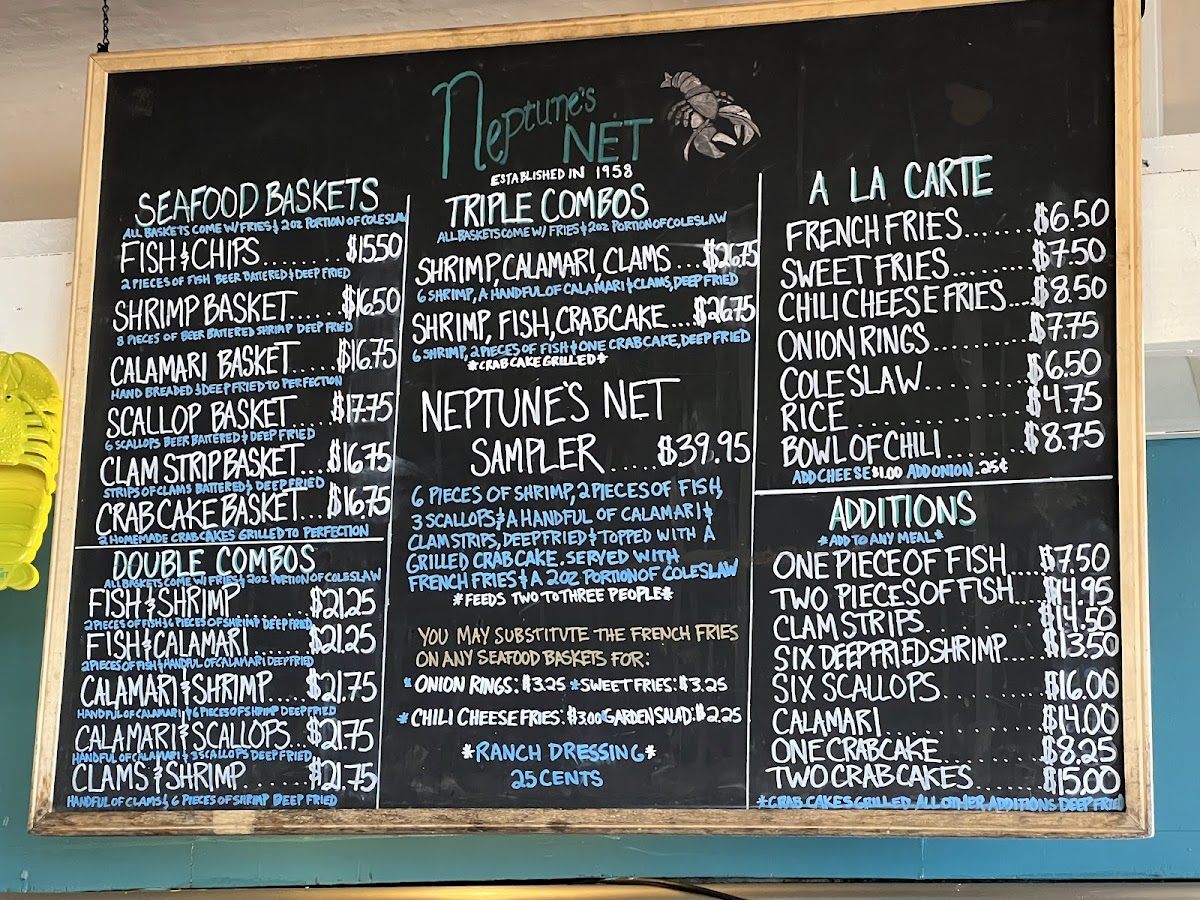 Neptune's
NET
ESTABLISHED IN 1958
SEAFOOD BASKETS
ALL BASKETS COME W/ FRIES & 2OZ PORTION OF COLESLAW
FISH & CHIPS.......... $15.50
2 PIECES OF FISH BEER BATTERED & DEEP FRIED
SHRIMP BASKET...... $16.50
8 PIECES OF BEER BATTERED SHRIMP DEEP FRIED
CALAMARI BASKET..... $16.75
HAND BREADED & DEEP FRIED TO PERFECTION
SCALLOP BASKET.... $17.75
6 SCALLOPS BEER BATTERED & DEEP FRIED
CLAM STRIP BASKET... $16.75
STRIPS OF CLAMS BATTERED & DEEP FRIED
CRAB CAKE BASKET... $16.75
2 HOMEMADE CRAB CAKES GRILLED TO PERFECTION
DOUBLE COMBOS
ALL BASKETS COME W/ FRIES & 2OZ PORTION OF COLESLAW
FISH & SHRIMP........ $21.25
2 PIECES OF FISH & 6 PIECES OF SHRIMP DEEP FRIED
FISH & CALAMARI...... $21.25
2 PIECES OF FISH & HANDFUL OF CALAMARI DEEP FRIED
CALAMARI & SHRIMP.... $21.75
HANDFUL OF CALAMARI & 6 PIECES OF SHRIMP DEEP FRIED
CALAMARI & SCALLOPS... $21.75
HANDFUL OF CALAMARI & 3 SCALLOPS DEEP FRIED
CLAMS & SHRIMP....... $21.75
HANDFUL OF CLAMS & 6 PIECES OF SHRIMP DEEP FRIED
TRIPLE COMBOS
ALL BASKETS COME W/ FRIES & 2OZ PORTION OF COLESLAW
SHRIMP, CALAMARI, CLAMS.... $26.75
6 SHRIMP, A HANDFUL OF CALAMARI & CLAMS, DEEP FRIED
SHRIMP, FISH, CRAB CAKE.... $26.75
6 SHRIMP, 2 PIECES OF FISH & ONE CRAB CAKE, DEEP FRIED
*CRAB CAKE GRILLED*
NEPTUNE'S NET
SAMPLER ..... $39.95
6 PIECES OF SHRIMP, 2 PIECES OF FISH,
3 SCALLOPS & A HANDFUL OF CALAMARI &
CLAM STRIPS, DEEP FRIED & TOPPED WITH A
GRILLED CRAB CAKE. SERVED WITH
FRENCH FRIES & A 2OZ PORTION OF COLESLAW
*FEEDS TWO TO THREE PEOPLE*
YOU MAY SUBSTITUTE THE FRENCH FRIES
ON ANY SEAFOOD BASKETS FOR:
*ONION RINGS: $3.25 *SWEET FRIES: $3.25
*CHILI CHEESE FRIES: $3.00 GARDEN SALAD: $2.25
*RANCH DRESSING*
25 CENTS
A LA CARTE
FRENCH FRIES....... $6.50
SWEET FRIES........ $7.50
CHILI CHEESE FRIES... $8.50
ONION RINGS......... $7.75
COLESLAW.......... $6.50
RICE................. $4.75
BOWL OF CHILI........ $8.75
ADD CHEESE $1.00 ADD ONION .25¢
ADDITIONS
*ADD TO ANY MEAL*
ONE PIECE OF FISH... $7.50
TWO PIECES OF FISH... $14.95
CLAM STRIPS.......... $14.50
SIX DEEP FRIED SHRIMP.... $13.50
SIX SCALLOPS........ $16.00
CALAMARI............. $14.00
ONE CRAB CAKE......... $8.25
TWO CRAB CAKES....... $15.00
*CRAB CAKES GRILLED, ALL OTHER ADDITIONS DEEP FRIED